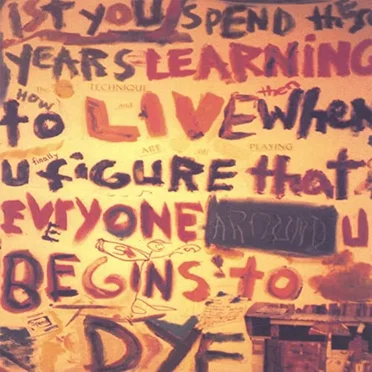 1ST YOU SPEND these
YEARS LEARNING
The TECHNIQUE and
HOW then
to LIVE When
ART OF PLAYING
finally
U FIGURE that
EVERYONE AROUND U
BEGINS to
DYE